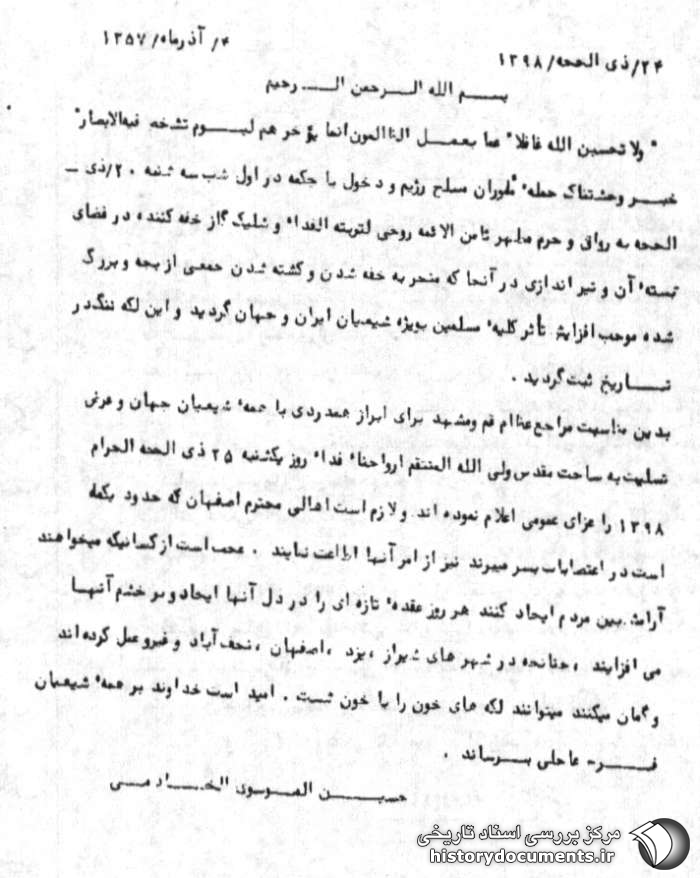 ۲۴/ذی الحجه/۱۳۹۸
۴/ آذرماه/ ۱۳۵۷
بسم الله الرحمن الرحیم
" ولا تحسبن الله غافلا" عما یعمل الظالمون انما یؤخرهم لیوم تشخص فیه الابصار"
خبر وحشتناک حمله‌ٔ مأموران مسلح رژیم و دخول با چکمه در اول شب سه شنبه ۲۰/ذی ـ
الحجه به رواق و حرم مطهر ثامن الائمه روحی لتربته الفداء و شلیک گاز خفه کننده در فضای
بسته‌ٔ آن و تیر اندازی در آنجا که منجر به خفه شدن و کشته شدن جمعی از بچه و بزرگ
شده موجب افزایش تأثر کلیه‌ٔ مسلمین بویژه شیعیان ایران و جهان گردید و این لکه ننگ در
تاریخ ثبت گردید .
بدین مناسبت مراجع عظام قم ومشهد برای ابراز همدردی با همه‌ٔ شیعیان جهان و عرض
تسلیت به ساحت مقدس ولی الله المنتقم ارواحناء فداء روز یکشنبه ۲۵ ذی الحجه الحرام
۱۳۹۸ را عزای عمومی اعلام نموده اند. و لازم است اهالی محترم اصفهان که حدود یکماه
است در اعتصابات بسر میبرند نیز از امر آنها اطاعت نمایند . عجب است از کسانیکه میخواهند
آرامش بین مردم ایجاد کنند هر روز عقده‌ٔ تازه ای را در دل آنها ایجاد و بر خشم آنها
می افزایند ، چنانچه در شهر های شیراز ، یزد ، اصفهان ، نجف آباد و غیره عمل کرده اند
و گمان میکنند میتوانند لکه های خون را با خون شست . امید است خداوند بر همه‌ٔ شیعیان
فرج عاجلی برساند .
حسین الموسوی الخادمی
مرکز بررسی اسناد تاریخی
historydocuments.ir